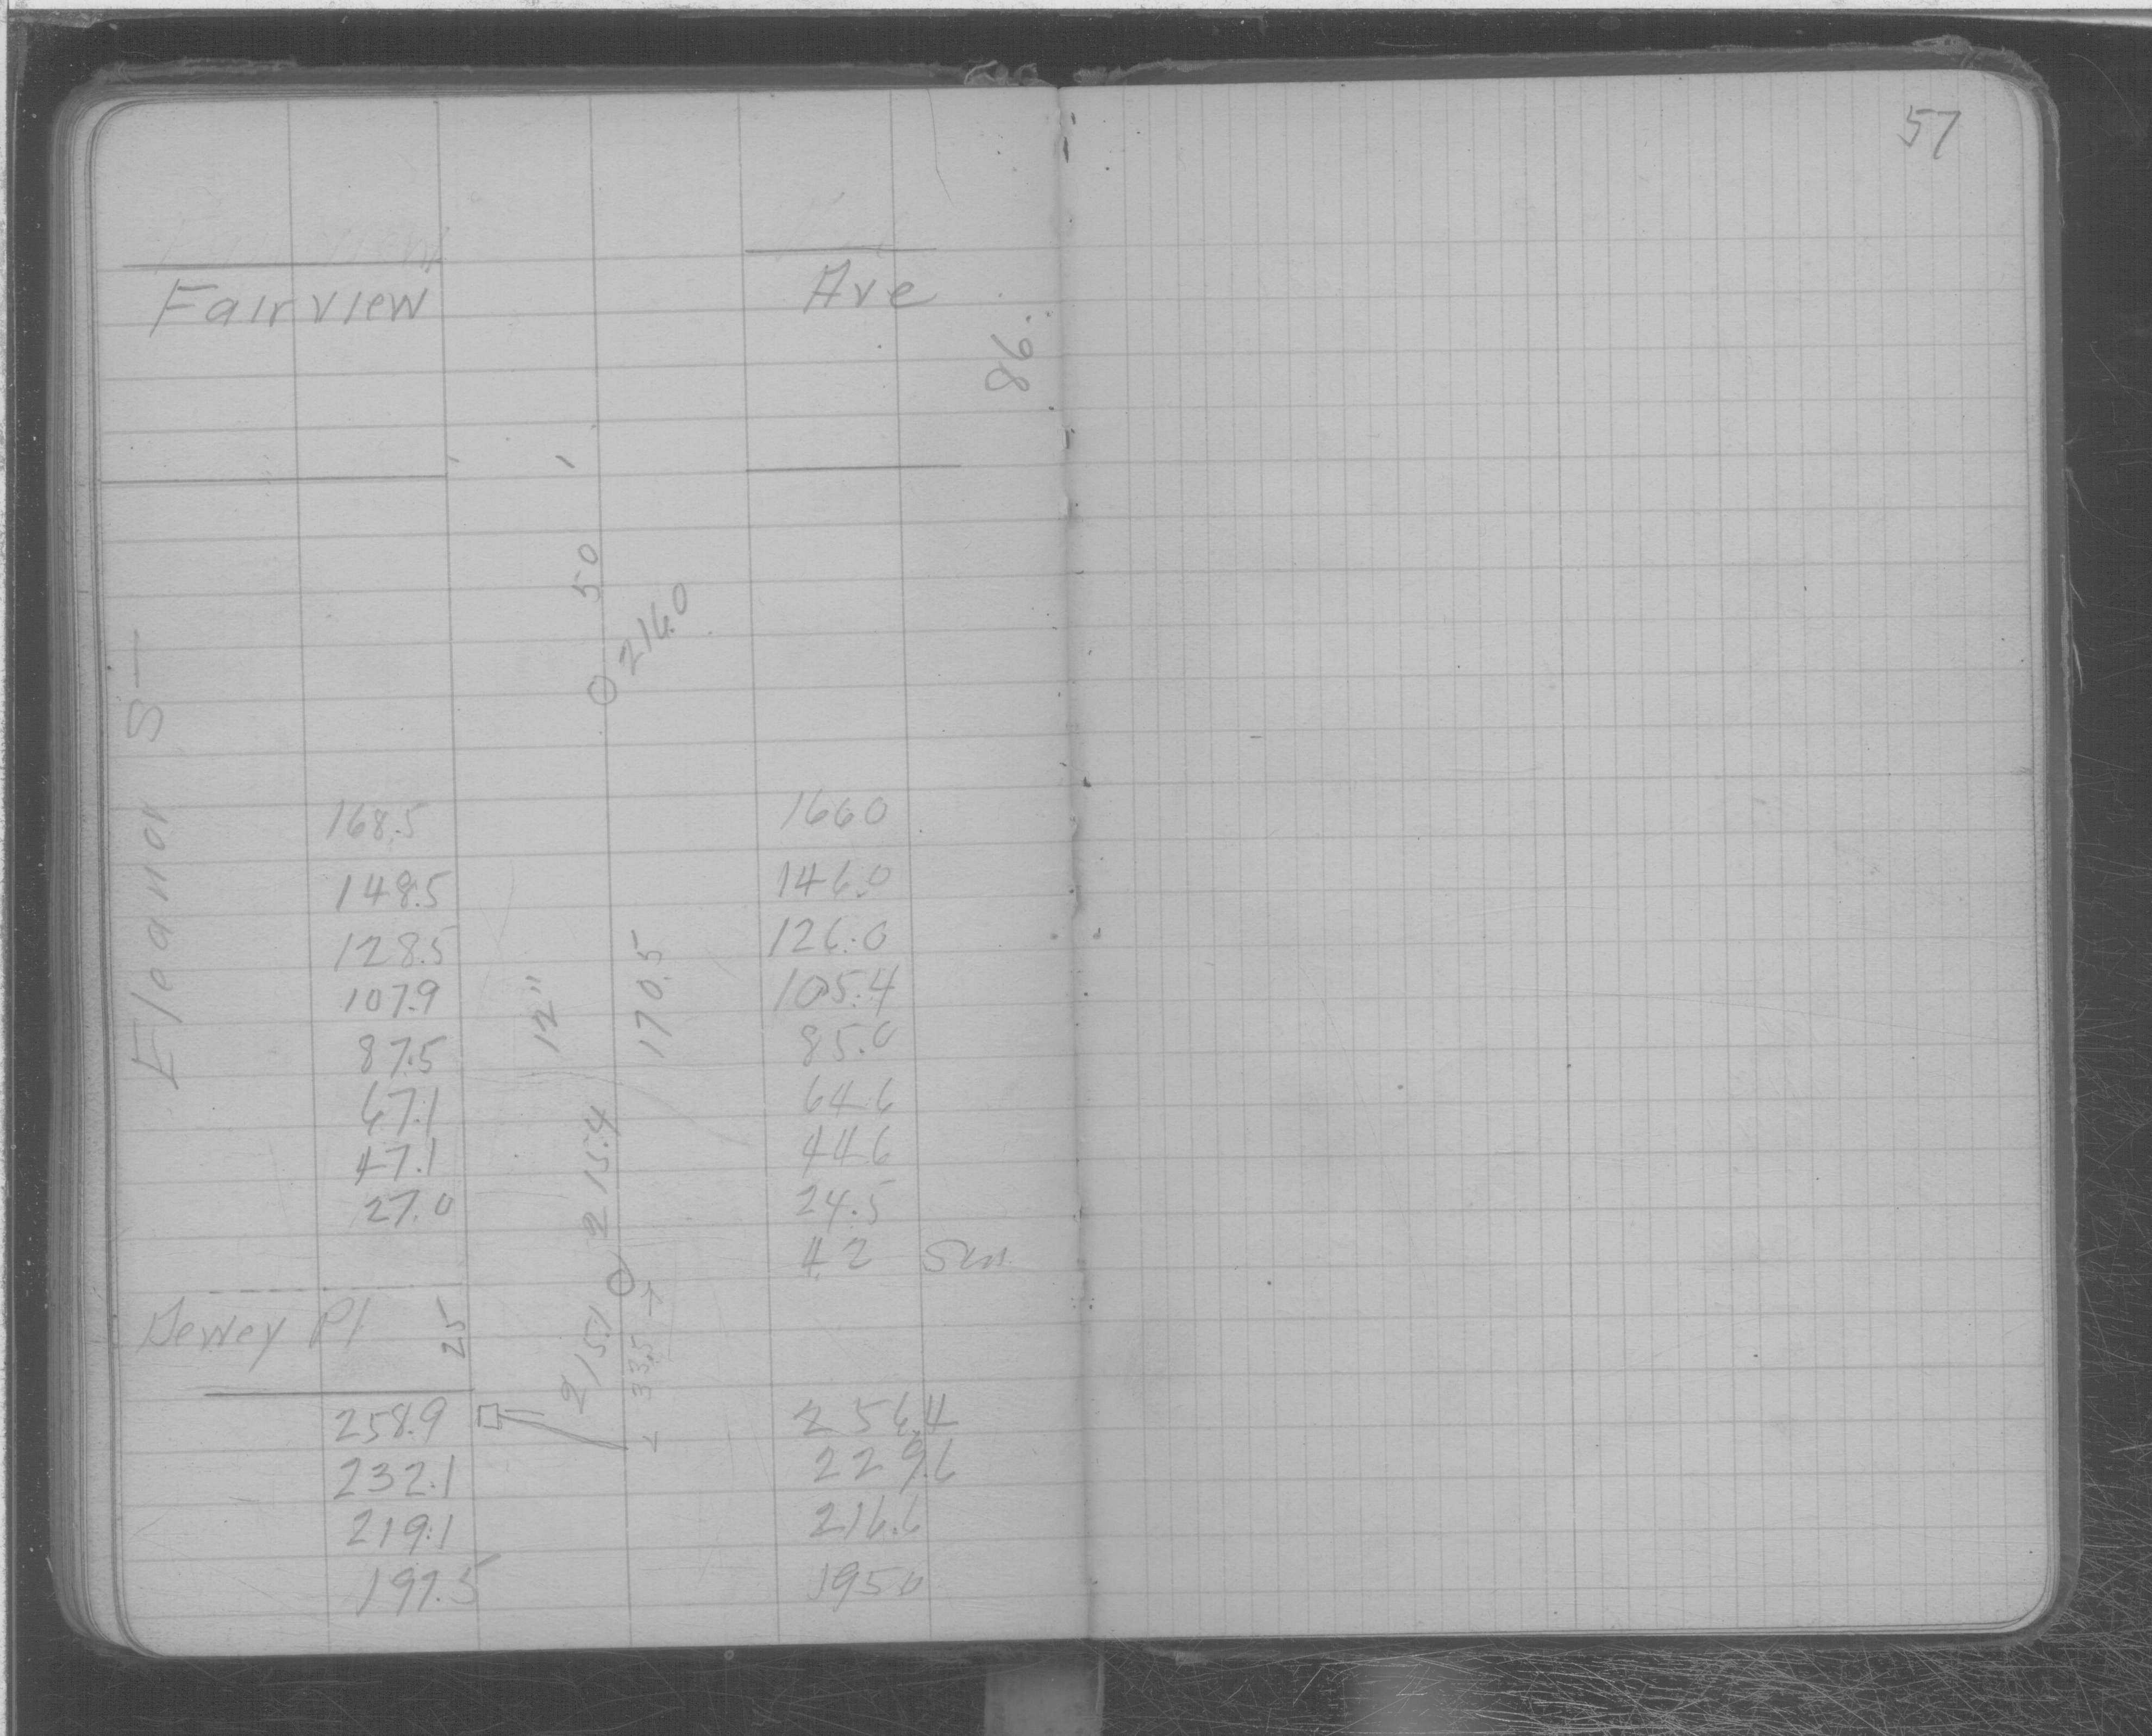 57
Fairview Ave
86.
50
216.0
Eleanor S—
168.5 166 0
148.5 146.0
128.5 126.0
107.9 105.4
12"
170.5
87.5 85.0
67.1 64.6
47.1 44.6
215.4
27.0 24.5
42
Dewey Pl
25
215.1
33.5
258.9 256.4
232.1 229.6
219.1 216.6
197.5 195 0